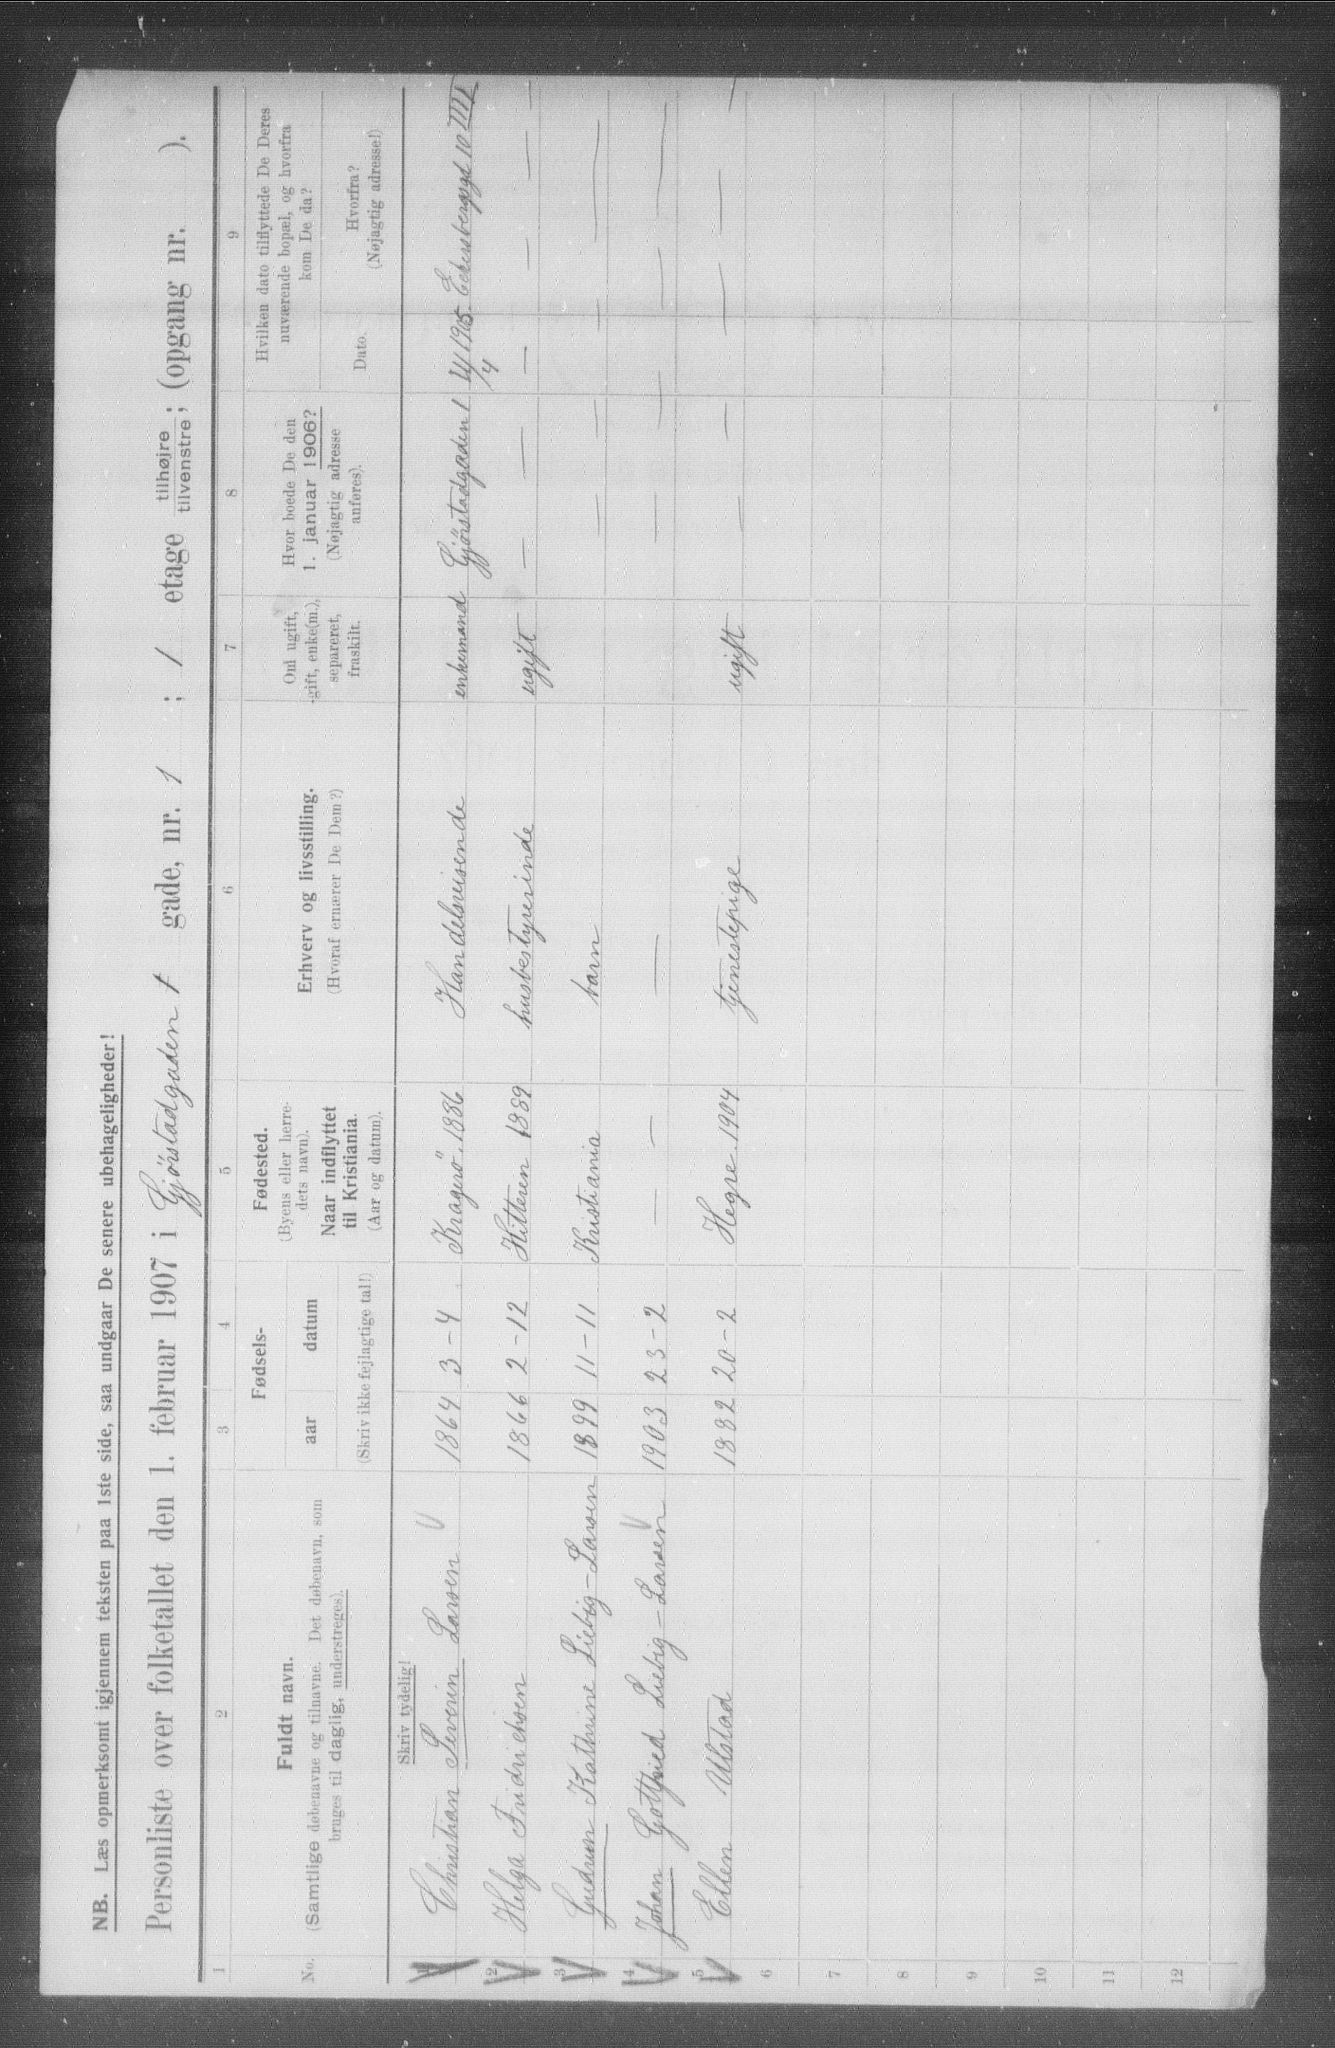 NB. Læs opmerksomt igjennem teksten paa 1ste side, saa undgaar De senere ubehageligheder!
Personliste over folketallet den 1. februar 1907 i Gjörstadgaden 1 gade, nr. 1 ; 1 etage tilhøjre tilvenstre ; (opgang nr. ).
1 2 3 4 5 6 7 8 9
No.
Fuldt navn.
(Samtlige døbenavne og tilnavne. Det døbenavn, som
bruges til daglig, understreges).
Fødsels-
aar datum
(Skriv ikke fejlagtige tal!)
Fødested.
(Byens eller herre-
dets navn).
Naar indflyttet
til Kristiania.
(Aar og datum).
Erhverv og livsstilling.
(Hvoraf ernærer De Dem?)
Om ugift,
gift, enke(m.),
separeret,
fraskilt.
Hvor boede De den
1. januar 1906?
(Nøjagtig adresse
anføres).
Hvilken dato tilflyttede De Deres
nuværende bopæl, og hvorfra
kom De da?
Dato.
Hvorfra?
(Nøjagtig adresse!)
Skriv tydelig!
1 Christian Severin Larsen 1864 3-4 Kragerö. 1886 Handelsreisende enkemand Gjörstadgaden 1 14/4 1905 10 IIII
2 Helga Fridrichsen 1866 2-12 Hitteren 1889 husbestyrerinde ugift — — — — — —
3 Gudrun Kathrine Liebig-Larsen 1899 11-11 Kristiania barn — — — —
4 Johan Gottfried Liebig-Larsen 1903 23-2 — — — — — — —
5 Ellen Ulstad 1882 20-2 Hegre. 1904 tjenestepige ugift — — — — —
6
7
8
9
10
11
12